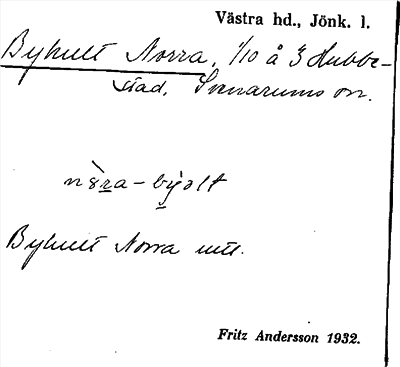 Västra hd., Jönk. l.
Byhult Norra, 1/10 å 3 Hubbe-
stad, Svenarums sn.
nöra-byolt
Byhult Norra utt.
Fritz Andersson 1932.